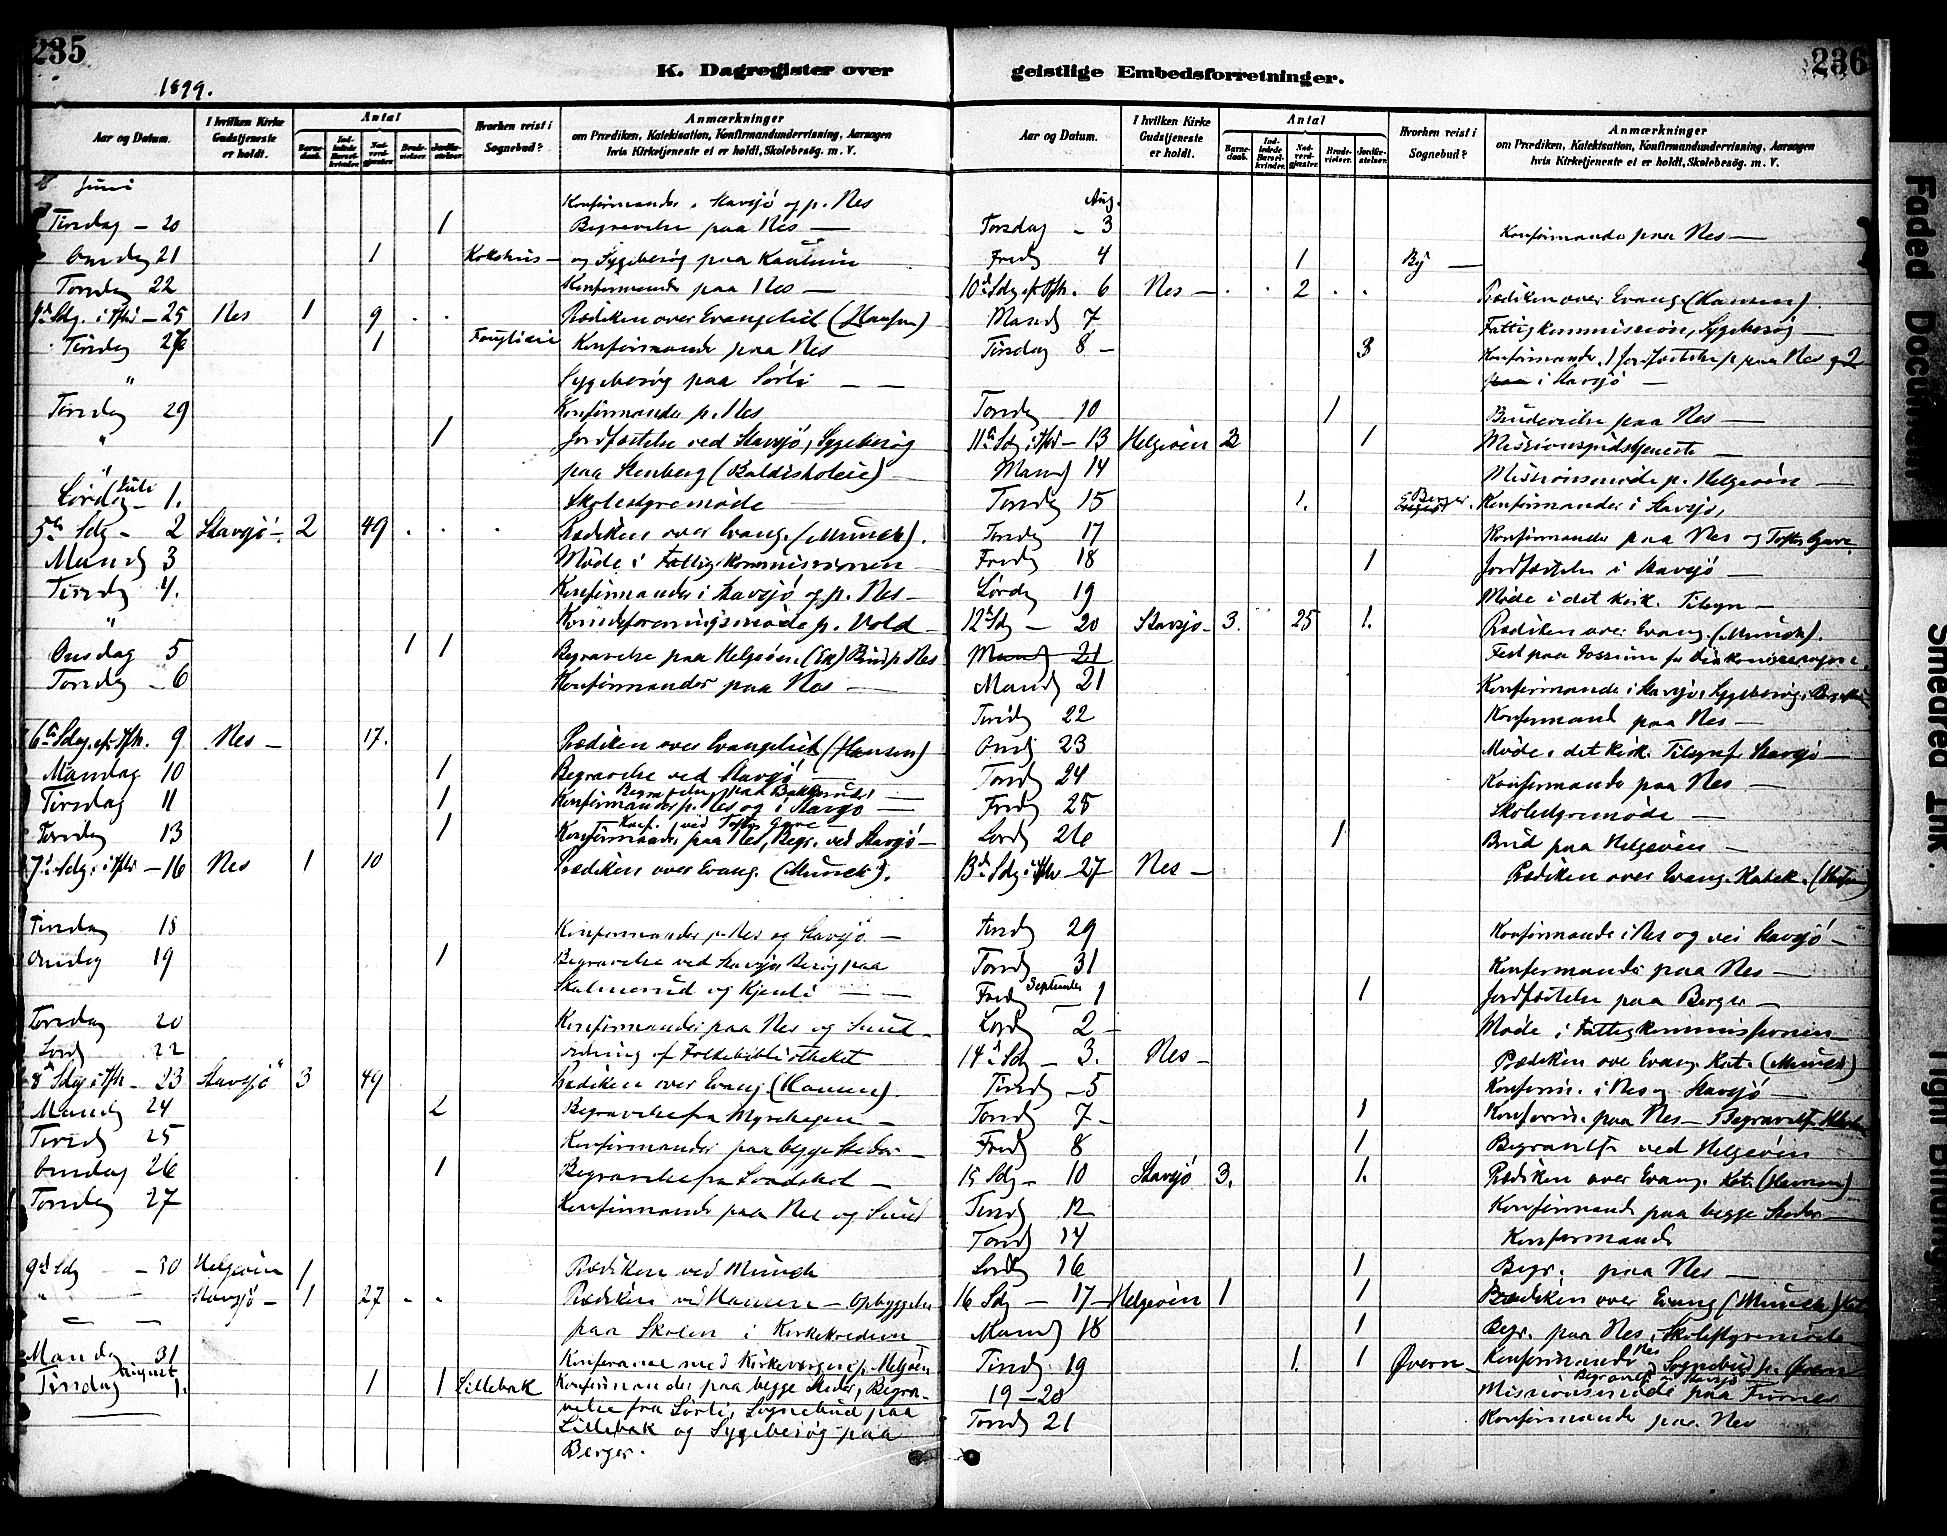 235
K. Dagregister over
1899.
Aar og Datum.
I hvilken Kirke Gudstjeneste er holdt.
Antal
Barnedaab.
Indledede Barselkvinder.
Nadverdgjester
Brudevielser.
Jordfæstelser
Hvorhen reist i Sognebud?
Anmærkninger
om Prædiken, Katekisation, Konfirmandundervisning, Aarsagen
hvis Kirketjeneste ei er holdt, Skolebesøg. m. V.
Juni
Konfirmander i Stavsjø og p. Nes
Tirsdag – 20 1 Begravelse paa Nes —
Onsdag 21 1 og Sygebesøg paa
Torsdag 22 Konfirmander paa Nes —
Sdg. i Tfti – 25 Nes 1 9 . . Prædiken over Evangeliet (Hansen)
Tirsdag 27 1 Konfirmander paa Nes
" Sygebesøg paa Sørli — —
Torsdag 29 Konfirmander p. Nes
" 1 Jordfæstelse ved Stavsjø, Sygebesøg
" paa Stenberg (Baldisholeie) —
Juli
Lørdag – 1. Skolestyremøde —
5te Sdg – 2 Stavsjø – 2 49 . . . Prædiken over Evang. (Munch).
Mandg 3 Møde i Fattigkommissionen —
Tirsdg 4. Konfirmander i Stavsjø og p. Nes –
" Kvindeforeningsmøde p. Vold —
Onsdag 5 1 1 Begravelse paa Helgeøen. Brud p. Nes
Torsdg – 6 Konfirmander paa Nes —
6te Sdag. eft. Tfti. 9 Nes – 17. Prædiken over Evangeliet (Hansen)
Mandag 10 1 Begravelse ved Stavsjø —
Begravelse paa Bakkerud
Tirsdag 11 1 Konfirmander p. Nes og i Stavsjø —
Konf. ved Toftes Gave
Torsdag 13 1 Konfirmander paa Nes, Begr. ved Stavsjø –
7de Sdg. i Tfti – 16 Nes 1 10 Prædiken over Evang. (Munch).
Tirsdag 18 Konfirmander p. Nes og Stavsjø —
Onsdag 19 1 Begravelse ved Stavsjø, Besøg paa
Skalmerud og Kjenli — —
Torsdag 20 Konfirmander paa Nes og Sund –
Lørdg 22 ordning af Folkebibliotheket
8de Sdg i Tfti. – 23 Stavsjø 3 49 Prædiken over Evang. (Hansen).
Mandg 24 2 Begravelse fra Myrehagen –
Tirsdg 25 Konfirmander paa begge Steder —
Onsdag 26 1 Begravelse fra —
Torsdag 27 Konfirmander paa Nes og Sund
9de Sdg – 30 Helgeøen 1 Prædiken ved Munch
" Stavsjø – 1 27 . . Prædiken ved Hansen – Opbyggelse
paa Skolen i Kirkekredsen
Mandag 31 Konferanse med Kirkevergen p. Helgøen
August
Tirsdag 1. 1 1 Lillebak Konfirmander paa begge Steder, Begra-
velse fra Sørli, Sognebud paa
Lillebak og Sygebesøg paa
Berger.
236
geistlige Embedsforretninger.
Aar og Datum.
I hvilken Kirke Gudstjeneste er holdt.
Antal
Barnedaab.
Indledede Barselkvinder.
Nadverdgjester.
Brudevielser.
Jordfæstelser.
Hvorhen reist i Sognebud?
Anmærkninger
om Prædiken, Katekisation, Konfirmandundervisning, Aarsagen
hvis Kirketjeneste ei er holdt, Skolebesøg. m. V.
Aug.
Torsdag – 3 Konfirmander paa Nes —
Fredg 4 1 By —
10de Sdg. eft. Tfti. 6 Nes – . . 2 . . Prædiken over Evang. (Hansen).
Mandg 7 Fattigkommission, Sygebesøg —
Tirsdag 8 – 3 Konfirmander, 1 Jordfæstelse p. paa Nes og 2
paa i Stavsjø —
Torsdg 10 1 Brudevielse paa Nes —
11te Sdg. i Tfti – 13 Helgeøen 2 1 Missionsgudstjeneste —
Mandg 14 Missionsmøde p. Helgeøen —
Tirsdg 15 1. Berger. Konfirmander i Stavsjø,
Torsdg 17 Konfirmander paa Nes og Toftes Gave.
Fredg 18 1 Jordfæstelse i Stavsjø —
Lørdg 19 Møde i det kirk. Tilsyn —
12te Sdg – 20 Stavsjø – 3. 25 1. Prædiken over Evang. (Munch).
Mandg 21 Fest paa for Diakonissesagen.
Mandg 21 Konfirmander i Stavsjø, Sygebesøg i
Tirsdg 22 Konfirmand paa Nes —
Onsdg 23 Møde i det kirk. Tilsyn af Stavsjø —
Torsdg 24 Konfirmander paa Nes —
Fredg 25 Skolestyremøde —
Lørdg 26 1 Brud paa Helgeøen —
13de Sdg i Tfti – 27 Nes – Prædiken over Evang. Katek.
Tirsdg 29 Konfirmander i Nes og ved Stavsjø —
Torsdg 31 Konfirmander paa Nes —
September
Fredg – 1 1 Jordfæstelse paa Berger —
Lørdg 2 – Møde i Fattigkommissionen —
14de Sdg – 3. Nes – Prædiken over Evang. Kat. (Munch)
Tirsdg – 5 Konfirm. i Nes og Stavsjø —
Torsdg 7 – 1 Konfirm. paa Nes –
Fredg 8 1 Begravelse ved Helgeøen
15 Sdg – 10 Stavsjø 3. 1. Prædiken over Evang. Kat. (Hansen)
Tirsdg 12 Konfirmander paa begge Steder —
Torsdg 14 Konfirmander
Lørdg 16 1 Begr. paa Nes —
16 Sdg – 17 – Helgeøen 1 1 Prædiken over Evang (Munch) Kat.
Mandg 18 1 Begr. paa Nes, Skolestyremøde
Tirsdg 19 1. 1 Øvern – Konfirmander Nes, Sognebud p. Øvern
Begravelse v. Stavsjø
19–20 Missionsmøde paa Furnes
Torsdg 21 Konfirmander paa Nes
Faded Document
Smeared Ink.
Tight Binding